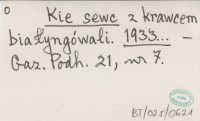 0
Kie sewc z krawcem
białyngówali. 1933... –
Gaz. Podh. 21, nr 7.
BT/025/0621